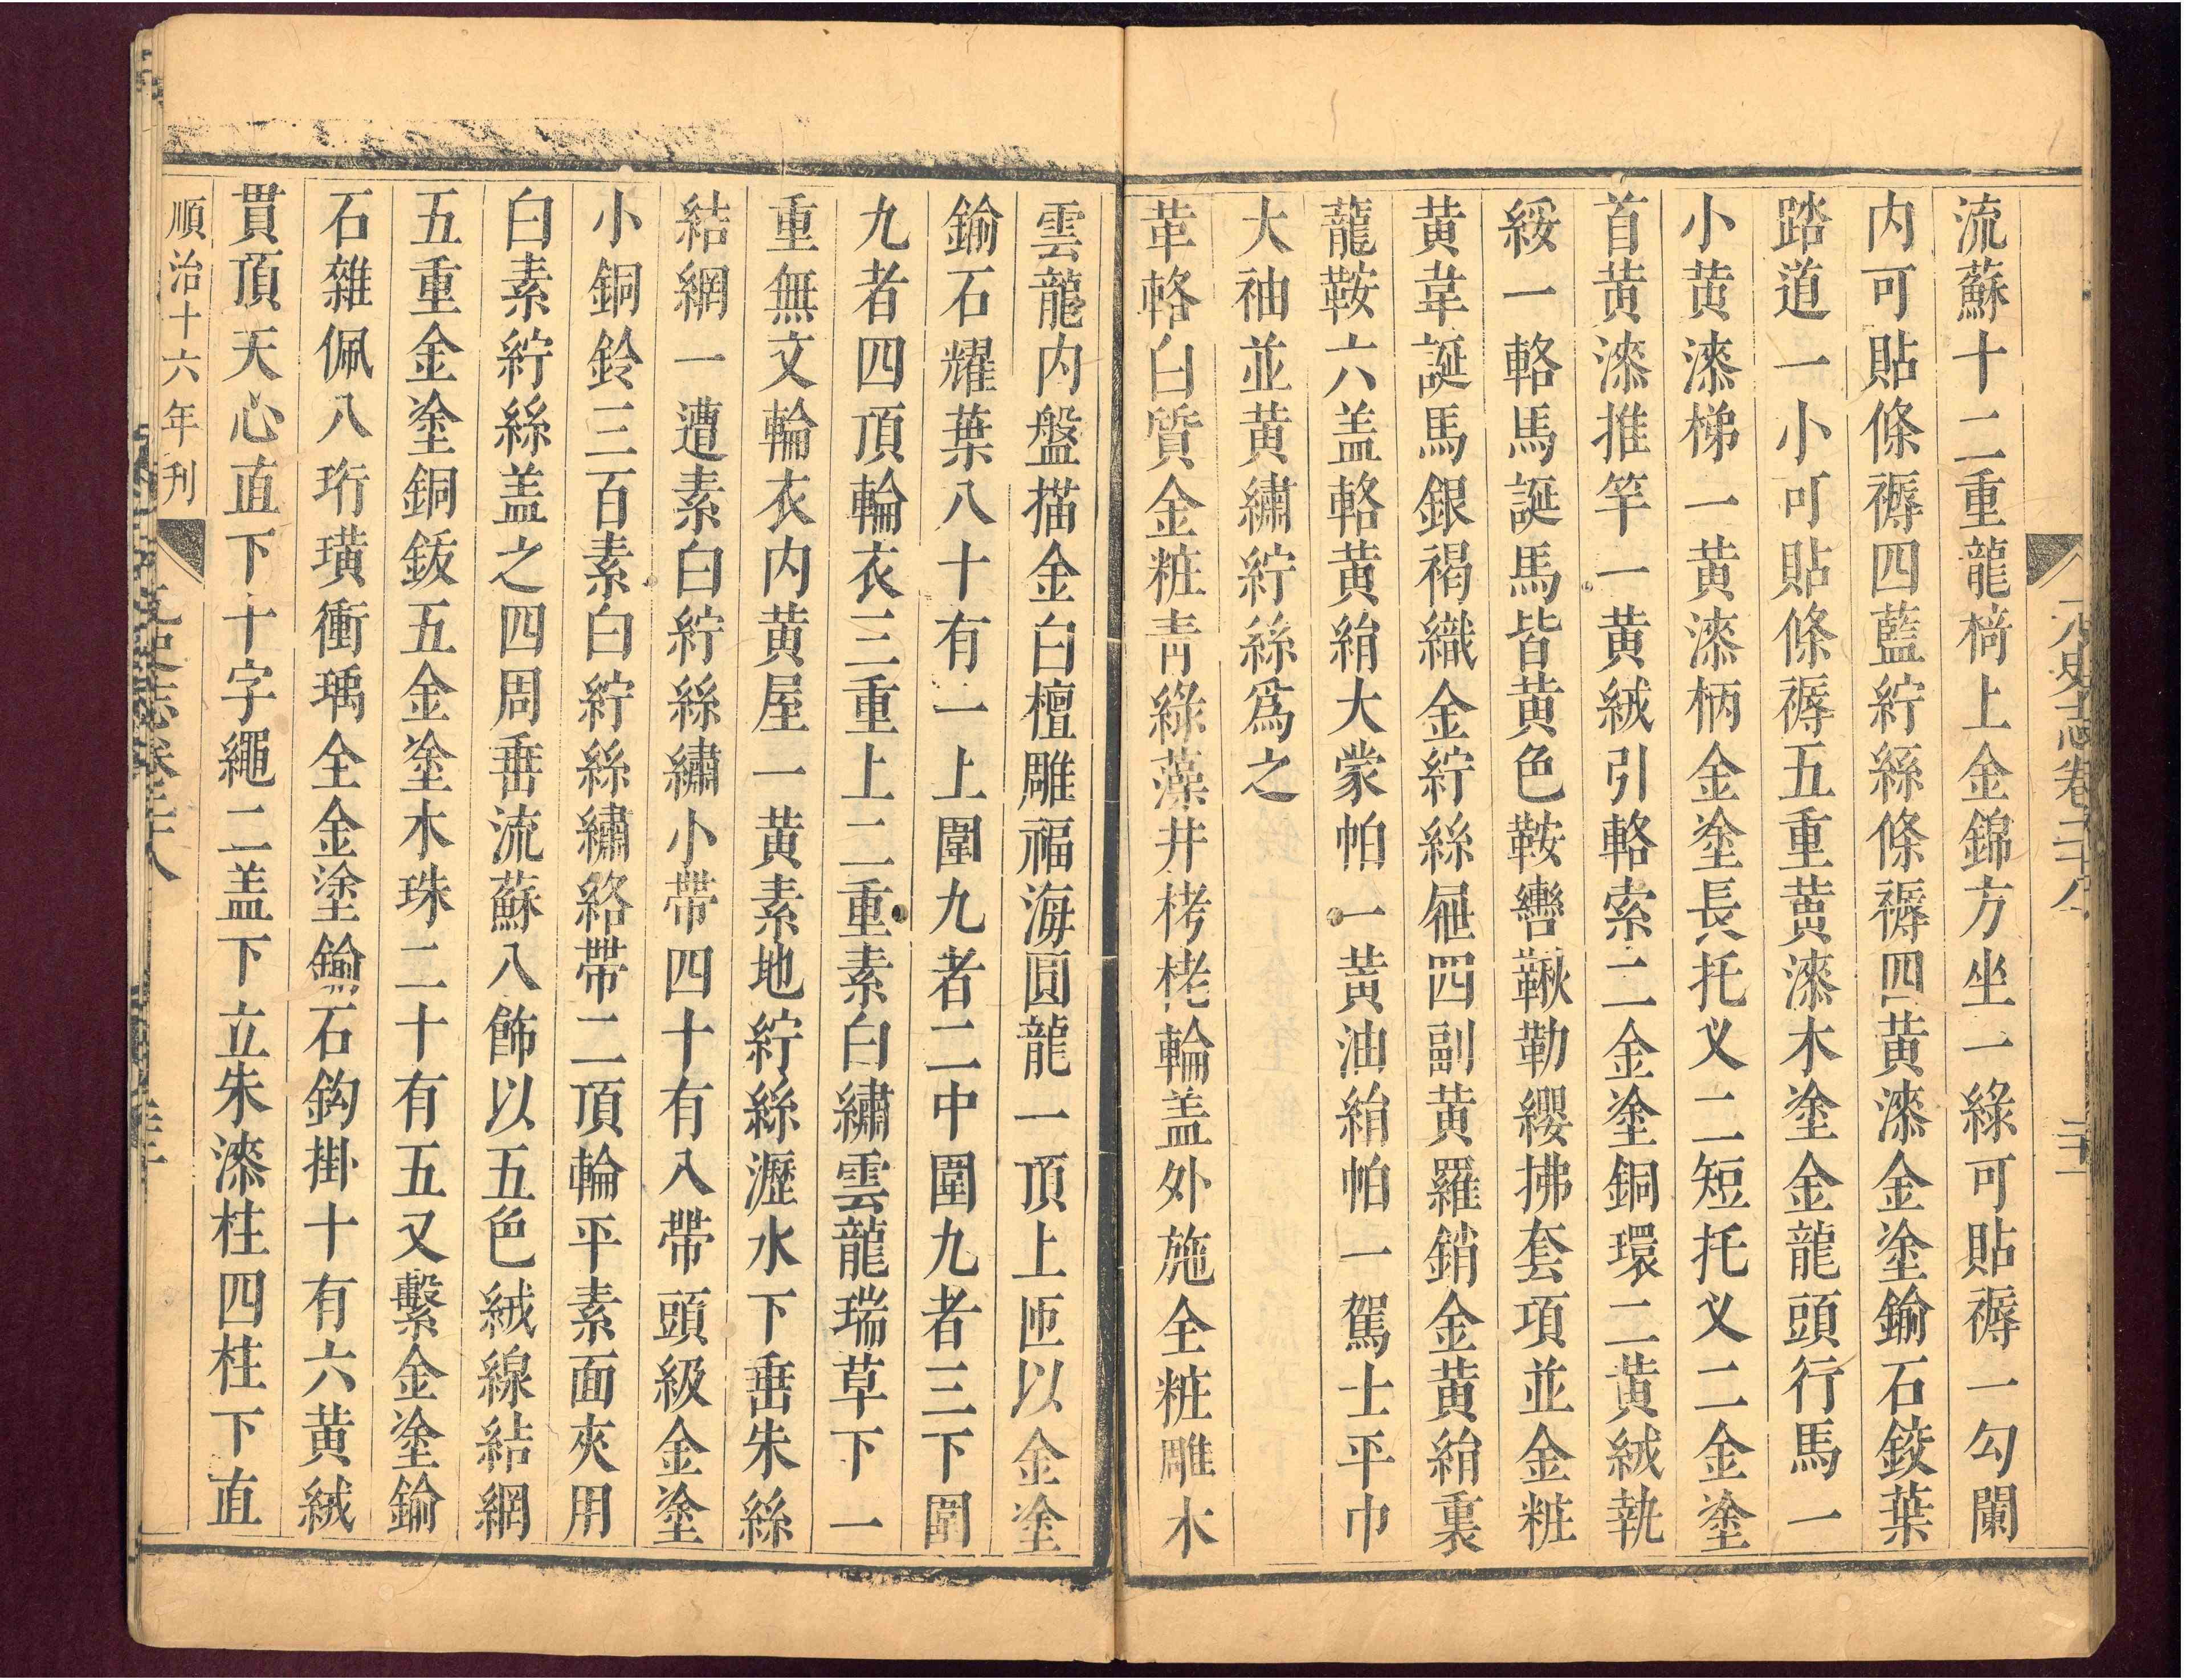 元史志卷二十八 二十一
流蘇十二重龍椅上金錦方坐一綠可貼褥一勾闌
内可貼條褥四藍紵絲條褥四黄漆金塗鍮石鉸葉
踏道一小可貼條褥五重黄漆木塗金龍頭行馬一
小黄漆梯一黄漆柄金塗長托义二短托义二金塗
首黄漆推竿一黄絨引輅索二金塗銅環二黄絨執
綏一輅馬誕馬皆黄色鞍轡鞦勒纓拂套項並金粧
黄韋誕馬銀褐織金紵絲屜四副黄羅銷金黄絹裏
蘢鞍六盖輅黄絹大蒙帕一黄油絹帕一駕士平巾
大袖並黄繡紵絲爲之
革輅白質金粧青綠藻井栲栳輪盖外施全粧雕木
雲龍内盤描金白檀雕福海圓龍一頂上匝以金塗
鍮石耀葉八十有一上圍九者二中圍九者三下圍
九者四頂輪衣三重上二重素白繡雲龍瑞草下一
重無文輪衣内黄屋一黄素地紵絲瀝水下垂朱絲
結網一遭素白紵絲繡小帶四十有八帶頭級金塗
小銅鈴三百素白紵絲繡絡帶二頂輪平素面夾用
白素紵絲盖之四周垂流蘇八飾以五色絨線結網
五重金塗銅鈸五金塗木珠二十有五又繫金塗鍮
石雜佩八珩璜衝瑀全金塗鍮石鈎掛十有六黄絨
貫頂天心直下十字繩二盖下立朱漆柱四柱下直
順治十六年刊